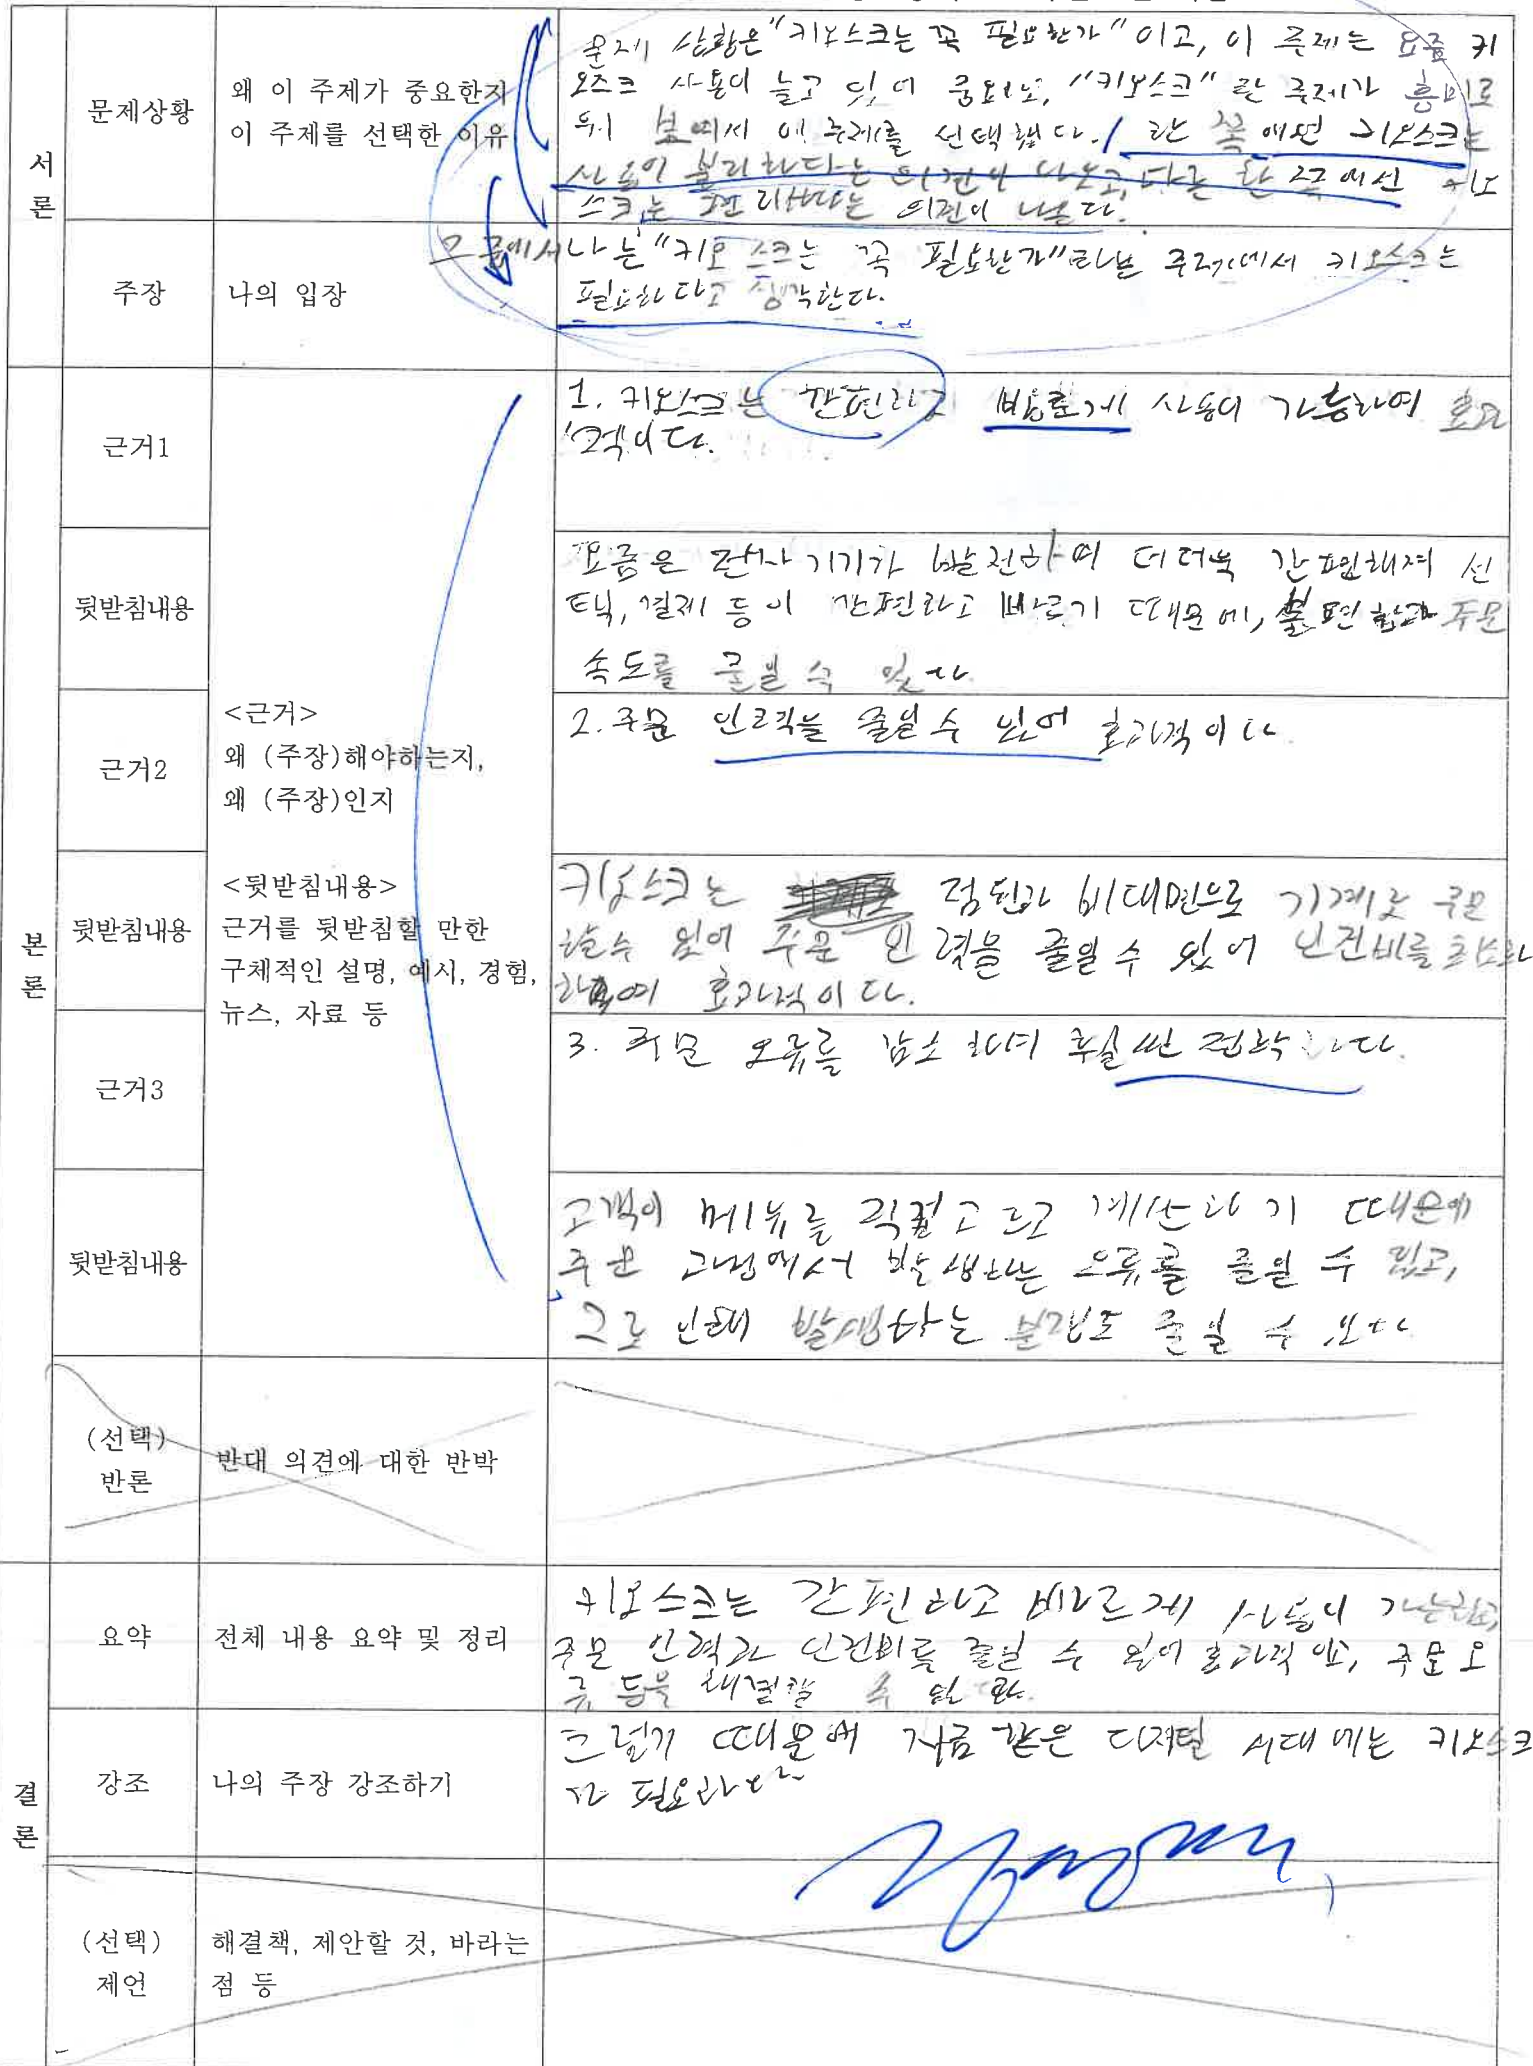 서론
문제상황
왜 이 주제가 중요한지
이 주제를 선택한 이유
문제 상황은 "키오스크는 꼭 필요한가" 이고, 이 문제는 요즘 키
오스크 사용이 늘고 있어 중요하고, "키오스크" 란 주제가 흥미로
워 보여서 이 주제를 선택했다. / 한 쪽에선 키오스크는
사용이 불리하다는 의견이 나오고, 다른 한 쪽에선 키오
스크는 편리하다는 의견이 나온다.
주장
나의 입장
그 중에서 나는 "키오스크는 꼭 필요한가"라는 주제에서 키오스크는
필요하다고 생각한다.
본론
근거1
1. 키오스크는 간편하고 빠르게 사용이 가능하여 효과
적이다.
뒷받침내용
요즘은 전자 기기가 발전하며 더더욱 간편해져 선
택, 결제 등이 간편하고 빠르기 때문에, 불편함과 주문
속도를 줄일 수 있다.
<근거>
왜 (주장)해야하는지,
왜 (주장)인지
<뒷받침내용>
근거를 뒷받침할 만한
구체적인 설명, 예시, 경험,
뉴스, 자료 등
근거2
2. 주문 인력을 줄일 수 있어 효과적이다.
뒷받침내용
키오스크는 점원과 비대면으로 기계로 주문
할 수 있어 주문 인력을 줄일 수 있어 인건비를 최소화
하여 효과적이다.
근거3
3. 주문 오류를 감소하여 훨씬 정확하다.
뒷받침내용
고객이 메뉴를 직접 고르고 계산하기 때문에
주문 과정에서 발생하는 오류를 줄일 수 있고,
그로 인해 발생하는 분쟁도 줄일 수 있다
(선택)
반론
반대 의견에 대한 반박
결론
요약
전체 내용 요약 및 정리
키오스크는 간편하고 빠르게 사용이 가능하고,
주문 인력과 인건비를 줄일 수 있어 효과적이고, 주문 오
류 등을 해결할 수 있다.
강조
나의 주장 강조하기
그렇기 때문에 지금 같은 디지털 시대에는 키오스크
가 필요하다
(선택)
제언
해결책, 제안할 것, 바라는
점 등